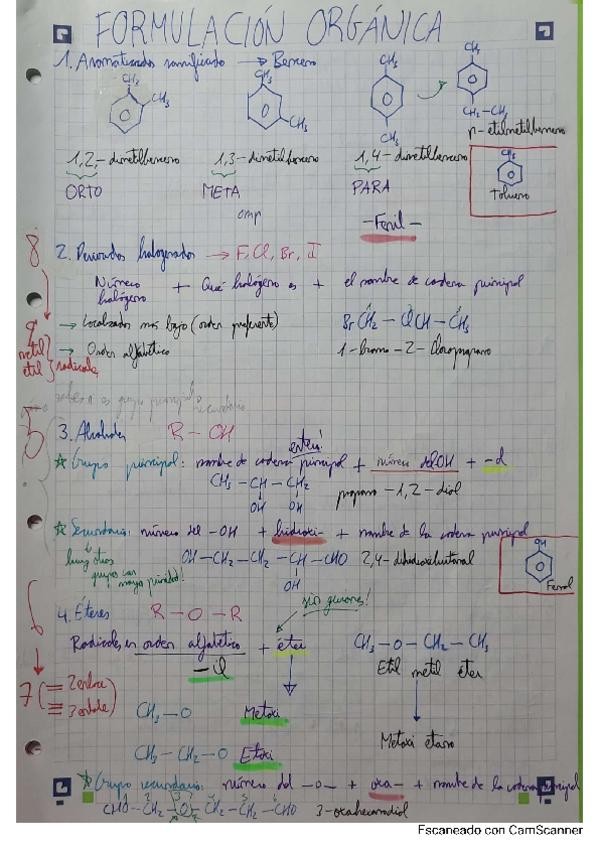 FORMULACIÓN ORGÁNICA
1. Aromatizados ramificado → Benceno
CH₃ CH₃ CH₃ CH₃
CH₃ CH₃ CH₃ CH₂-CH₃
p-etilmetilbenceno
1,2,-dimetilbenceno 1,3-dimetilbenceno 1,4-dimetilbenceno
CH₃
Tolueno
ORTO META PARA
omp
-Fenil-
8
2. Derivados halogenados → F, Cl, Br, I
Número halógeno + Qué halógeno es + el nombre de cadena principal
9
→ Localizados más bajo (orden preferente)
→ Orden alfabético
metil
etil } radicales
BrCH₂ - ClCH - CH₃
1-bromo-2-Cloropropano
5
3. Alcoholes R-OH
☆ Grupo principal: nombre de cadena principal + número del OH + -ol
CH₃ - CH - CH₂
OH OH
propano-1,2-diol
☆ Secundario: número del -OH + hidroxi- + nombre de la cadena principal
hay otros grupos con mayor prioridad!
OH-CH₂-CH₂-CH-CHO
OH
2,4-dihidroxibutanal
OH
Fenol
6
4. Éteres R-O-R
sin guiones!
Radicales en orden alfabético + éter
-il
CH₃-O-CH₂-CH₃
Etil metil éter
7 (= 2 enlace
≡ 3 enlace)
CH₃-O Metoxi
CH₃-CH₂-O Etoxi
Metoxi etano
☆ Grupo secundario: número del -O- + oxa- + nombre de la cadena principal
CHO-CH₂-O-CH₂-CH₂-CHO 3-oxahexanodial
Escaneado con CamScanner